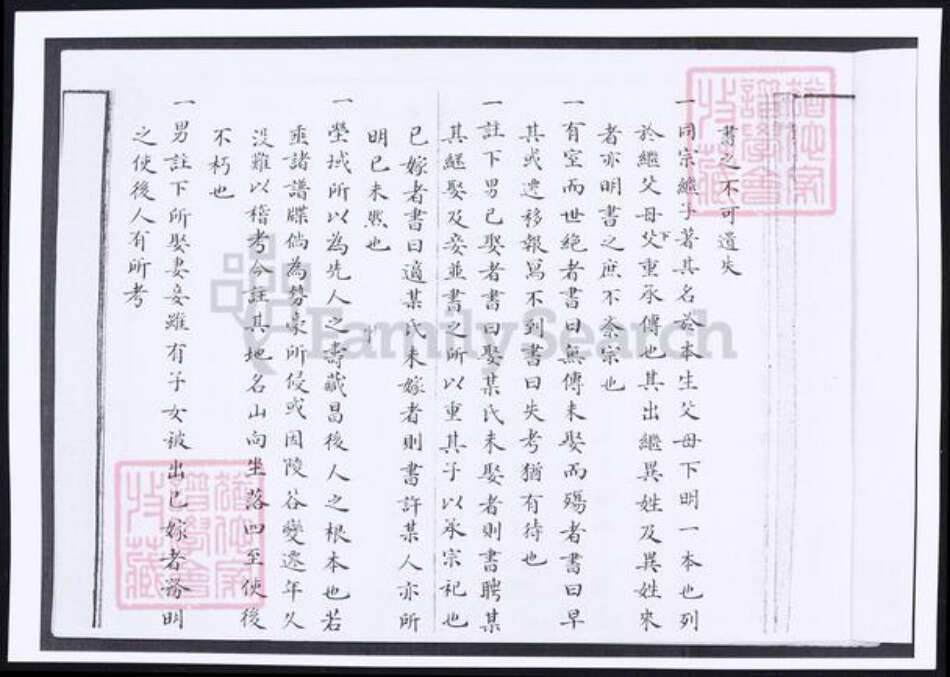 書之不可遺失
一同宗繼子著其名於本生父母下明一本也列
於繼父母父下重承傳也其出繼異姓及異姓來
者亦明書之庶不紊宗也
一有室而世絕者書曰無傳未娶而殤者書曰早
其或遷移報寫不到書曰失考猶有待也
一註下男已娶者書曰娶某氏未娶者則書聘某
其繼娶及妾並書之所以重其子以承宗祀也
已嫁者書曰適某氏未嫁者則書許某人亦所
明已未然也
一塋域所以為先人之壽藏昌後人之根本也若
垂諸譜牒倘為勢豪所侵或因陵谷變遷年久
沒難以稽考今註其地名山向坐落四至使後
不朽也
一男註下所娶妻妾雖有子女被出已嫁者務明
之使後人有所考
FamilySearch